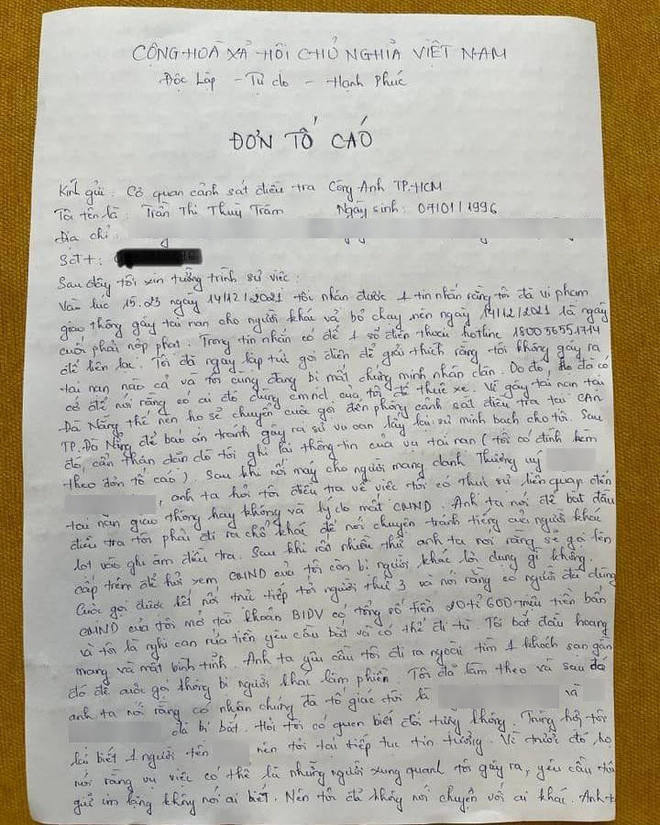 CỘNG HOÀ XÃ HỘI CHỦ NGHĨA VIỆT NAM
Độc Lập - Tự do - Hạnh Phúc
ĐƠN TỐ CÁO
Kính gửi: Cơ quan cảnh sát điều tra Công Anh TP.HCM
Tôi tên là: Trần Thị Thuỳ Trâm Ngày sinh: 07/01/1996
Địa chỉ:
Sđt:
Sau đây tôi xin tường trình sự việc:
Vào lúc 15.23 ngày 14/12/2021 tôi nhận được 1 tin nhắn rằng tôi đã vi phạm
giao thông gây tai nạn cho người khác và bỏ chạy nên ngày 14/12/2021 là ngày
cuối phải nộp phạt. Trong tin nhắn có để 1 số điện thoại hotline 180056551714
để liên lạc. Tôi đã ngay lập tức gọi điện để giải thích rằng tôi không gây ra
tai nạn nào cả và tôi cũng đang bị mất chứng minh nhân dân. Do đó, họ đã có
cớ để nói rằng có ai đó dùng cmnd của tôi để thuê xe. Về gây tai nạn tại
Đà Nẵng thế nên họ sẽ chuyển cuộc gọi đến phòng cảnh sát điều tra tại CAN
TP. Đà Nẵng để báo án tránh gây ra sự vu oan lấy lại sự minh bạch cho tôi. Sau
đó, cẩn thận dẫn dò tôi ghi lại thông tin của vụ tai nạn (tôi có đính kèm
theo đơn tố cáo). Sau khi nối máy cho người mang danh Thượng uý
, anh ta hỏi tôi điều tra về việc tôi có thực sự liên quan đến
tai nạn giao thông hay không và lý do mất CMND. Anh ta nói để bắt đầu
điều tra tôi phải đi ra chỗ khác để nói chuyện tránh tiếng của người khác
lọt vào ghi âm điều tra. Sau khi rất nhiều thứ anh ta nói rằng sẽ gọi lên
cấp trên để hỏi xem CMND của tôi còn bị người khác lợi dụng gì không.
Cuộc gọi được kết nối trực tiếp tới người thứ 3 và nói rằng có người đã dùng
CMND của tôi mở tài khoản BIDV có tổng số tiền 20 tỉ 600 triệu tiền bẩn
và tôi là nghi can rửa tiền yêu cầu bắt và có thể đi tù. Tôi bắt đầu hoang
mang và mất bình tĩnh. Anh ta yêu cầu tôi đi ra ngoài tìm 1 khách sạn gần
đó để cuộc gọi không bị người khác làm phiền. Tôi đã làm theo và sau đó
anh ta nói rằng có nhân chứng đã tố giác tôi là và
đã bị bắt. Hỏi tôi có quen biết đối tượng không. Trùng hợp tôi
lại biết 1 người tên nên tôi lại tiếp tục tin tưởng. Vì trước đó họ
nói rằng vụ việc có thể là những người xung quanh tôi gây ra, yêu cầu tôi
giữ im lặng không nói ai biết. Nên tôi đã không nói chuyện với ai khác. Anh t